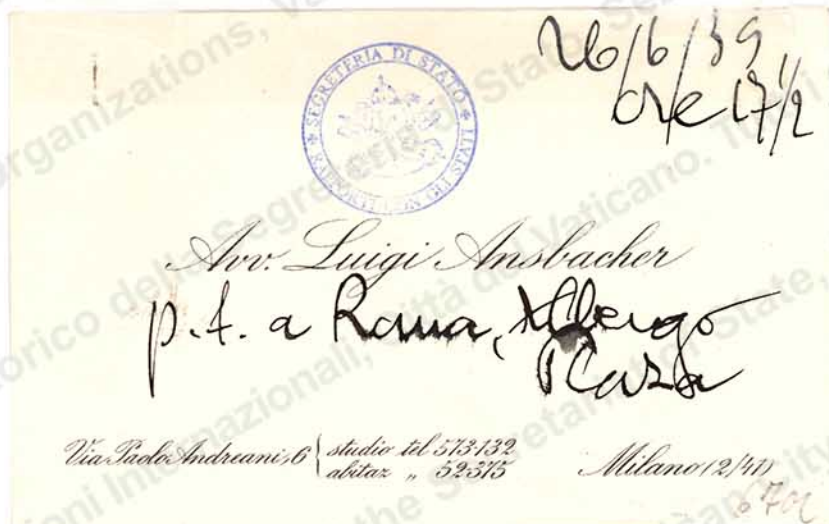 26/6/39
ore 17 1/2
SEGRETERIA DI STATO
RAPPORTI CON GLI STATI
Avv. Luigi Ansbacher
p. t. a Roma, Albergo
Plaza
Via Paolo Andreani, 6 { studio tel 573-132
abitaz „ 52-375
Milano (2/41)